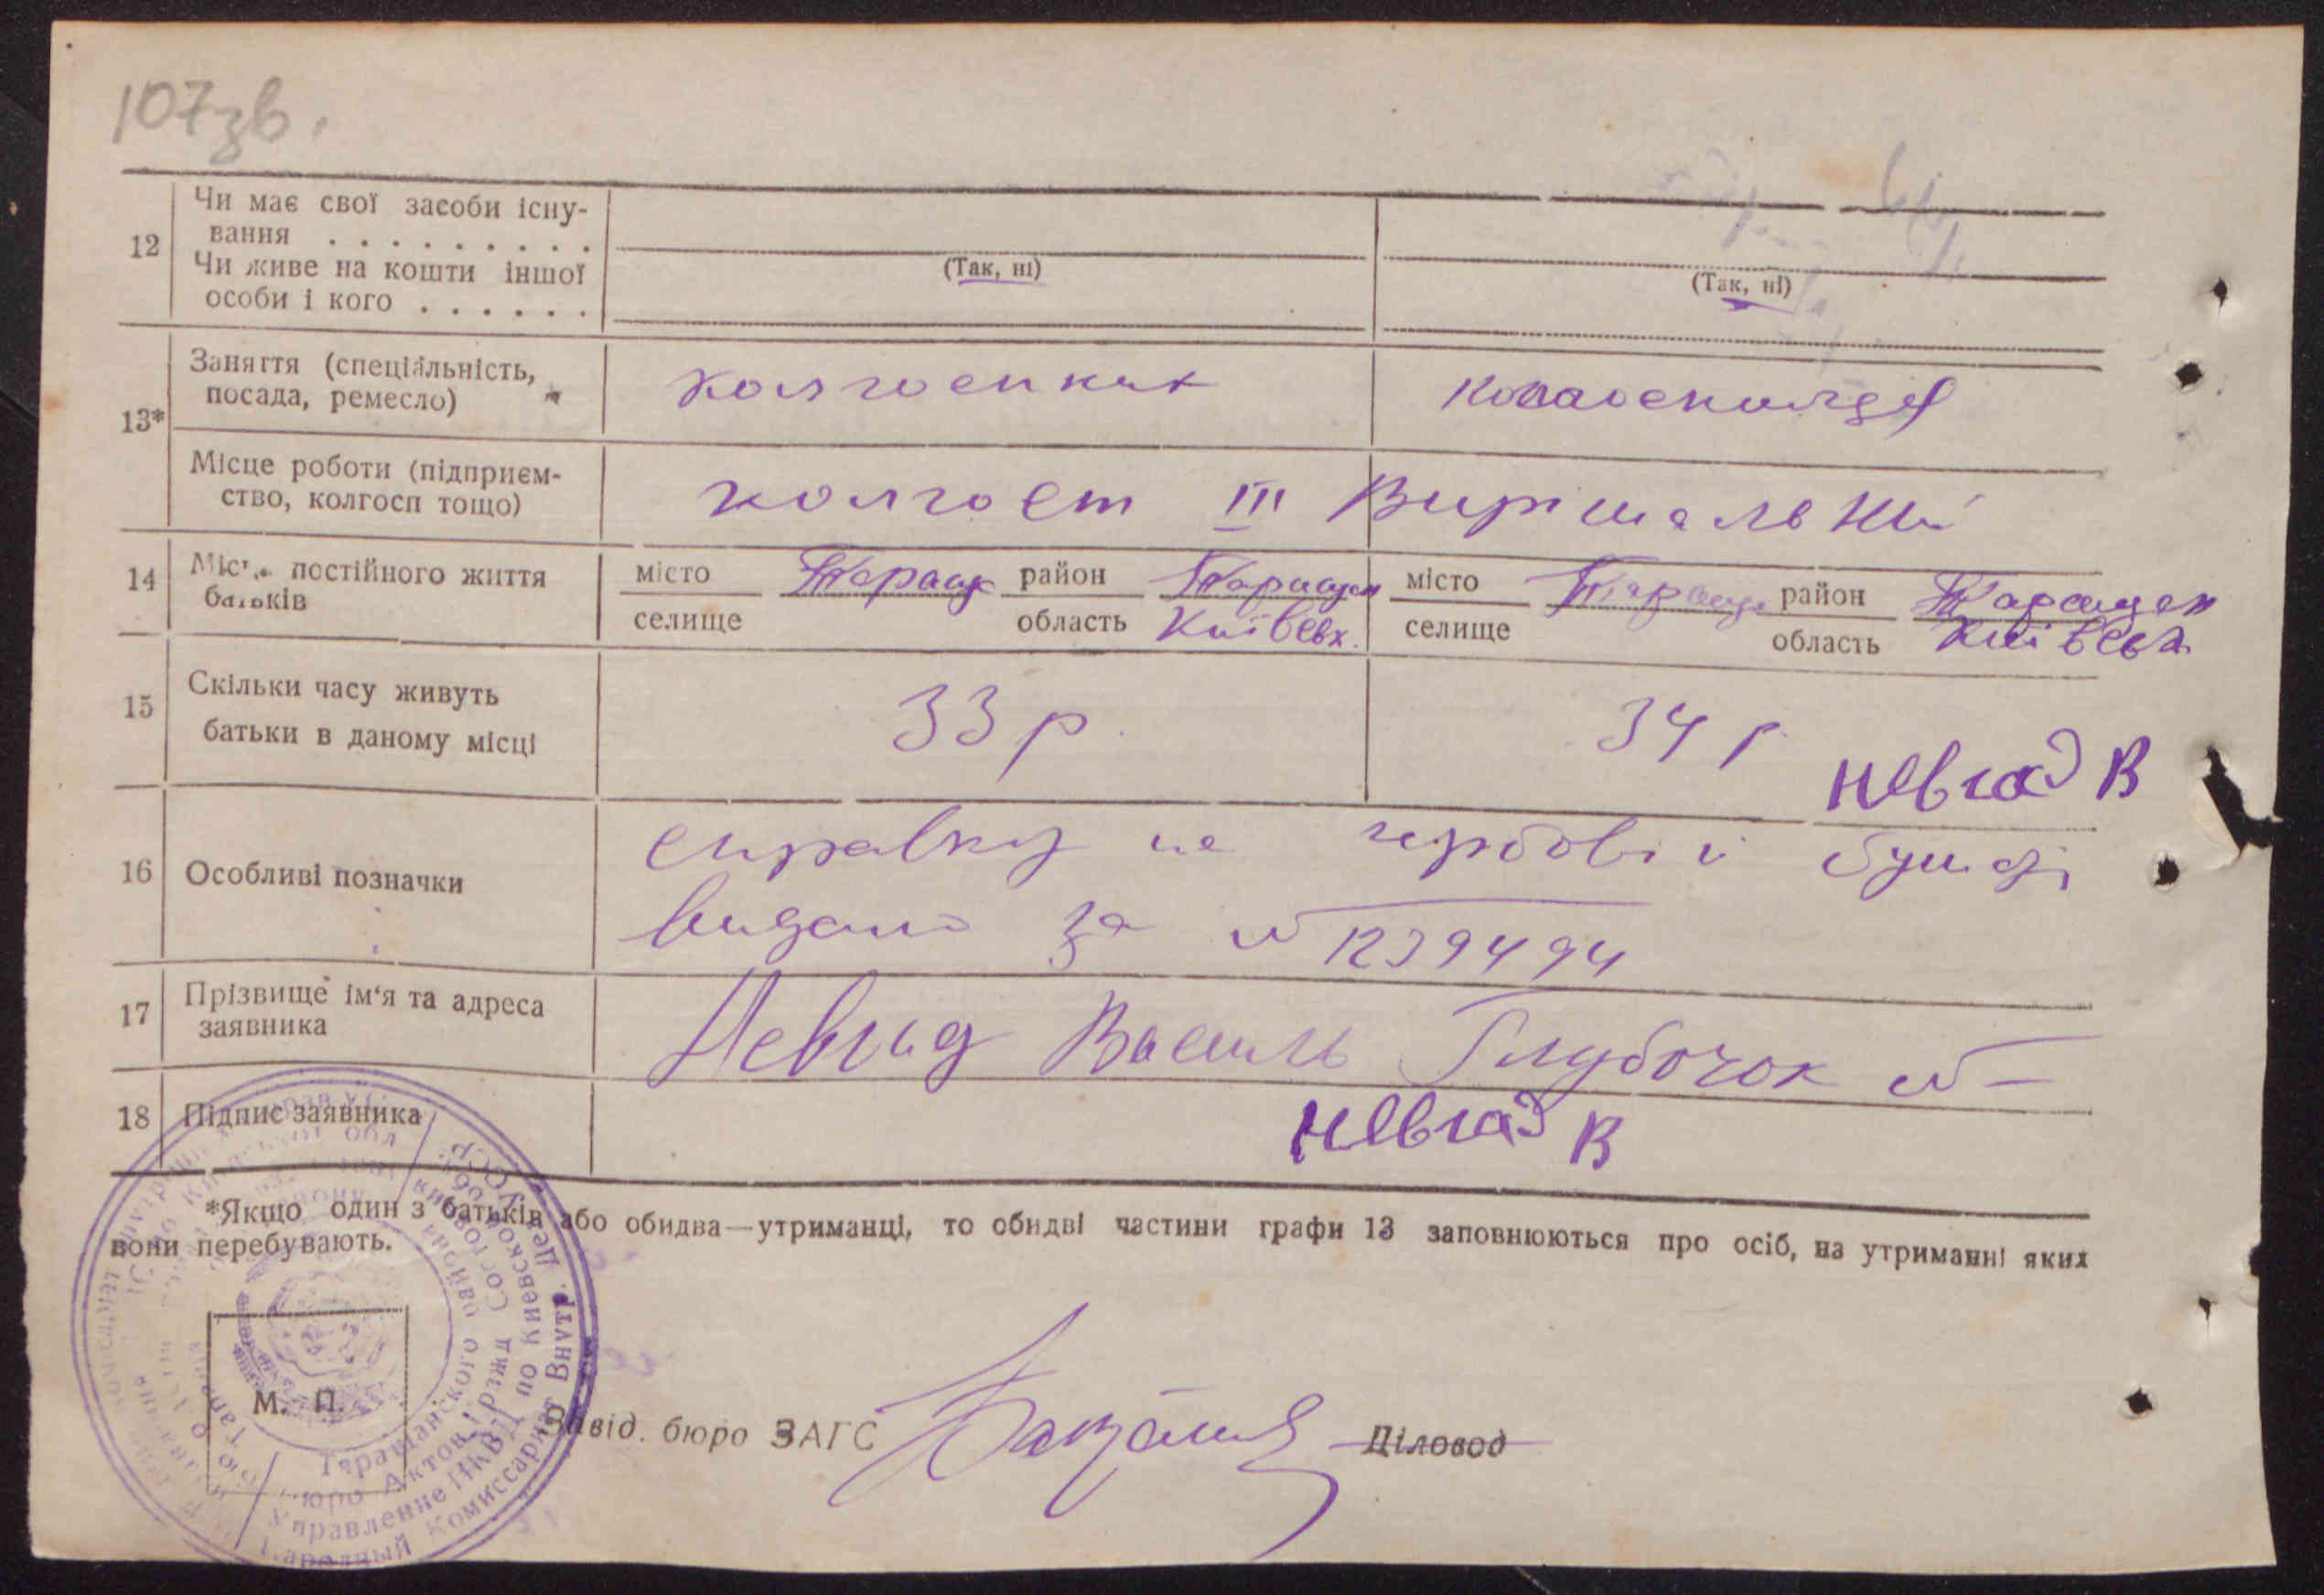 107зв.
12 Чи має свої засоби існу-
вання . . . . . . . . .
Чи живе на кошти іншої
особи і кого . . . . . .
(Так, ні) (Так, ні)
13* Заняття (спеціальність,
посада, ремесло)
колгоспник
Місце роботи (підприєм-
ство, колгосп тощо)
колгосп III Вирішальний
14 Місце постійного життя
батьків
місто Тараща район Таращан місто Тараща район Таращан
селище область Київськ. селище область Київськ
15 Скільки часу живуть
батьки в даному місці
33 р. 34 р
Невгад В
16 Особливі позначки
справку на гербовій бумазі
видано за № 1239494
17 Прізвище ім‘я та адреса
заявника
Невгад Василь Глубочок № –
18 Підпис заявника
Невгад В
*Якщо один з батьків або обидва—утриманці, то обидві частини графи 13 заповнюються про осіб, на утриманні яких
вони перебувають.
М. П.
Завід. бюро ЗАГС Діловод
Народный Комиссариат Внутр. Дел УССР
Управление НКВД по Киевской обл.
Бюро Актов Гражд Состояния
Таращанского района